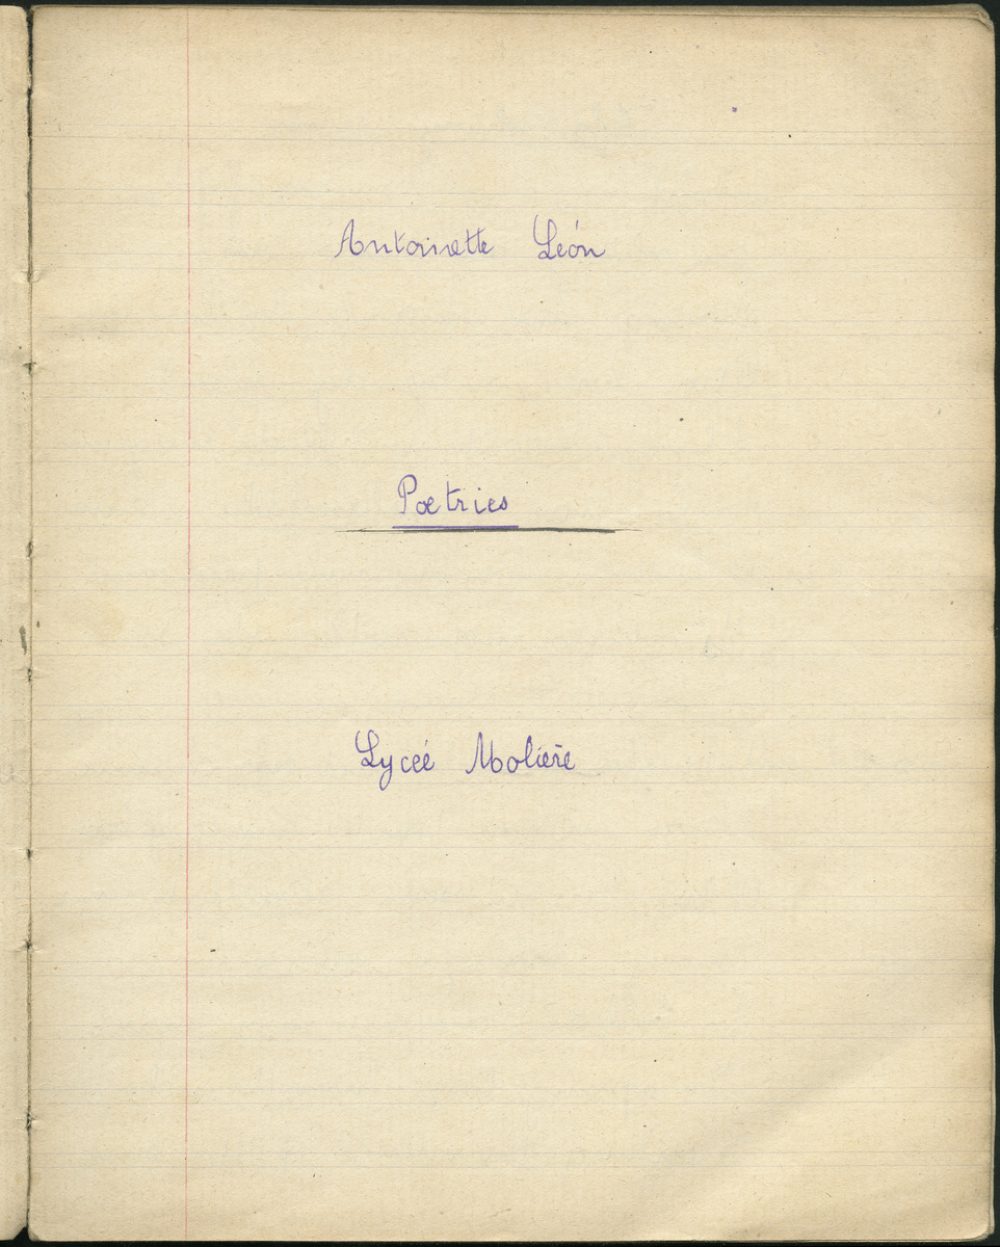 Antoinette Léon
Poetries
Lycée Molière